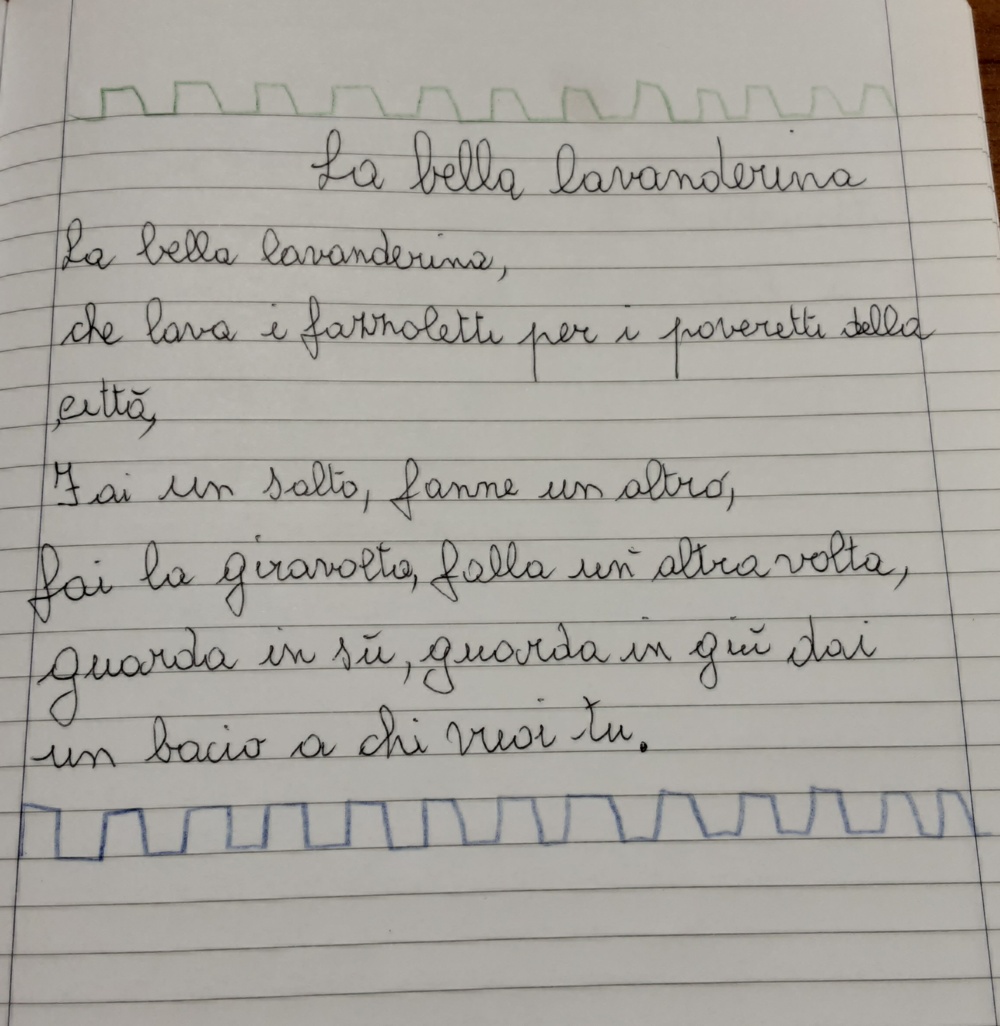 La bella lavanderina
La bella lavanderina,
che lava i fazzoletti per i poveretti della
città,
Fai un salto, fanne un altro,
fai la giravolta, falla un'altra volta,
guarda in sù, guarda in giù dai
un bacio a chi vuoi tu.